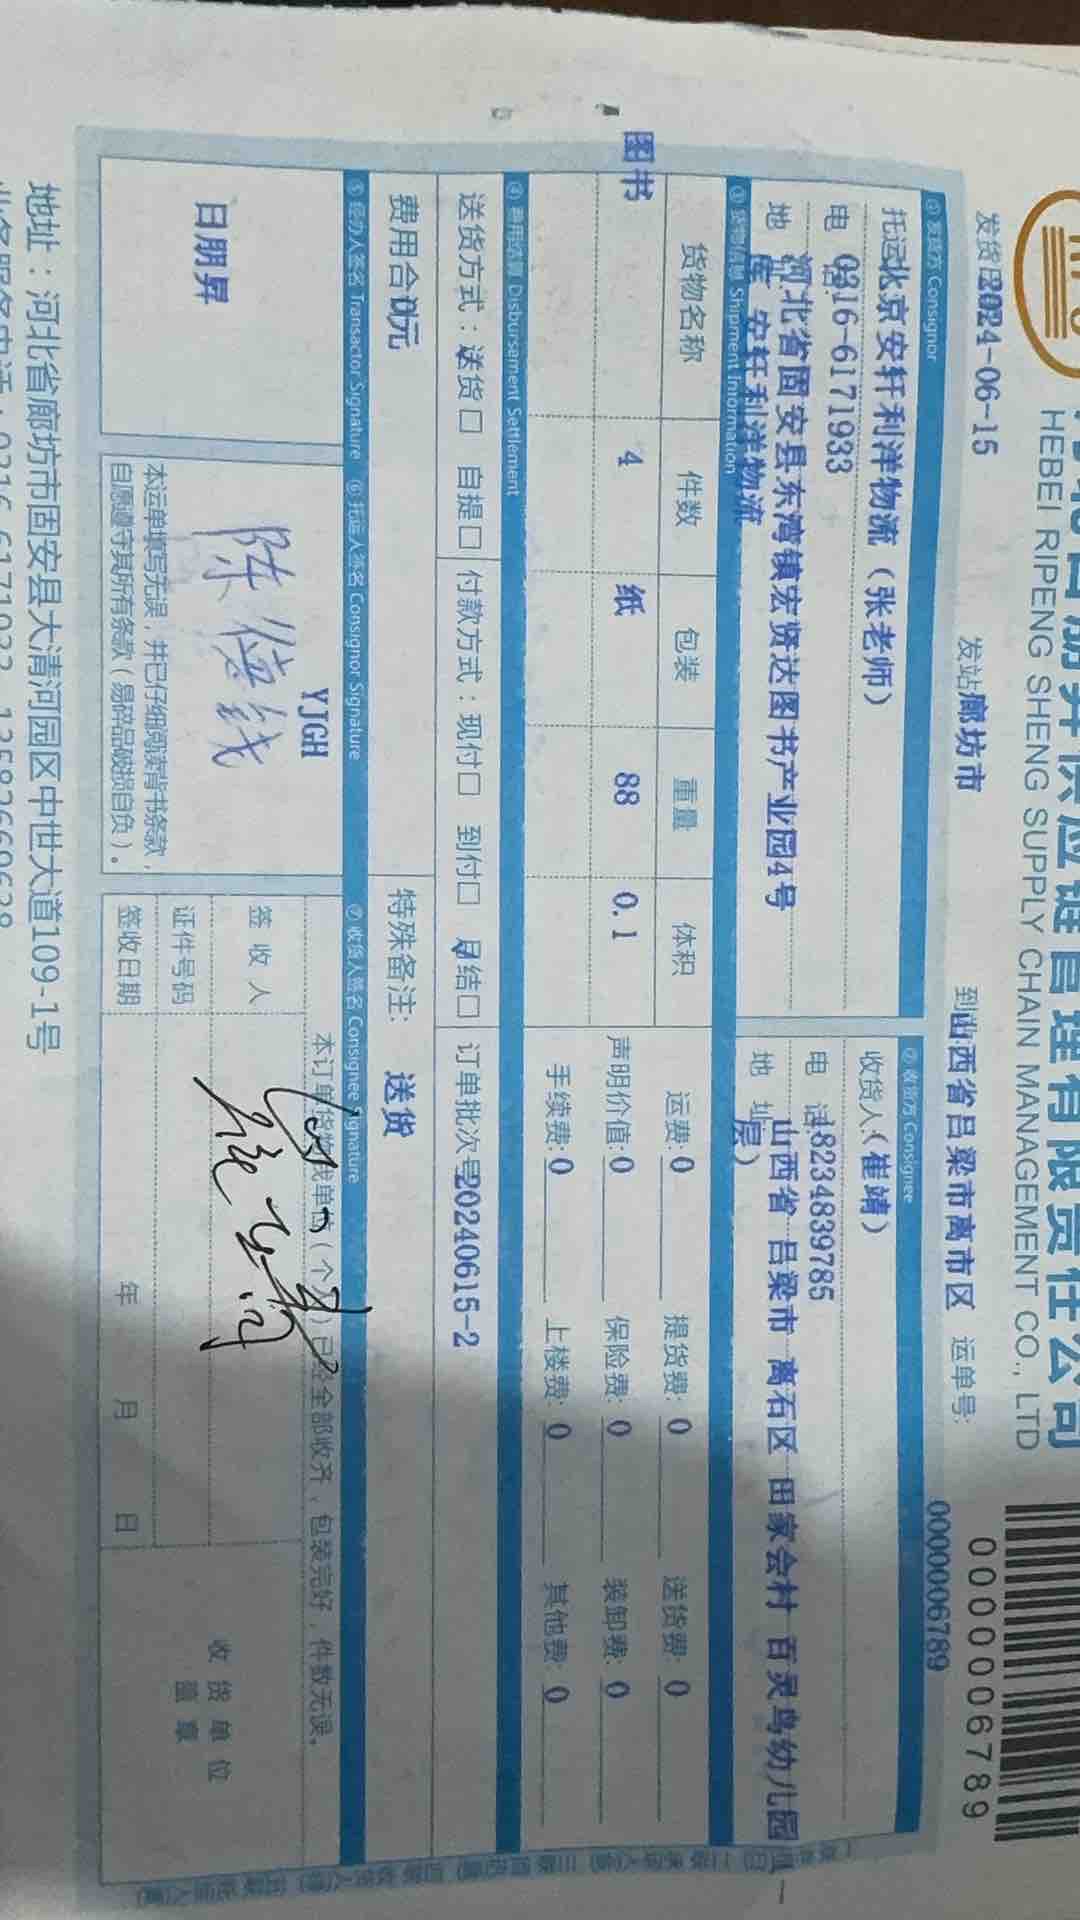 供应链管理有限责任公司
HEBEI RIPENG SHENG SUPPLY CHAIN MANAGEMENT CO., LTD
0000006789
发货日2024-06-15 发站廊坊市 到山西省吕梁市离市区 运单号:
0000006789
① 发货方 Consignor ② 收货方 Consignee
托运北京安轩利洋物流（张老师） 收货人:(崔靖)
电 0316-6171933 电 话18234839785
地 河北省固安县东湾镇宏贤达图书产业园4号 地 址 山西省 吕梁市 离石区 田家会村 百灵鸟幼儿园
库 安轩利洋物流 层）
③ 货物信息 Shipment Information
货物名称 件数 包装 重量 体积 运费:0 提货费: 0 送货费: 0
图书 4 纸 88 0.1 声明价值:0 保险费: 0 装卸费: 0
手续费:0 上楼费: 0 其他费: 0
④ 费用结算 Disbursement Settlement
送货方式：送货□ 自提□ 付款方式：现付□ 到付□ 月结□ 订单批次号20240615-2
费用合0元 特殊备注: 送货
⑤ 经办人签名 Transactor Signature ⑥ 托运人签名 Consignor Signature ⑦ 收货人签名 Consignee Signature
日朋昇
YJGH
本运单填写无误，并已仔细阅读背书条款，
自愿遵守其所有条款（易碎品破损自负）。
本订单货物我单位（个人）已经全部收齐，包装完好，件数无误。
签 收 人
证件号码
签收日期 年 月 日
收 货 单 位
盖 章
地址：河北省廊坊市固安县大清河园区中世大道109-1号